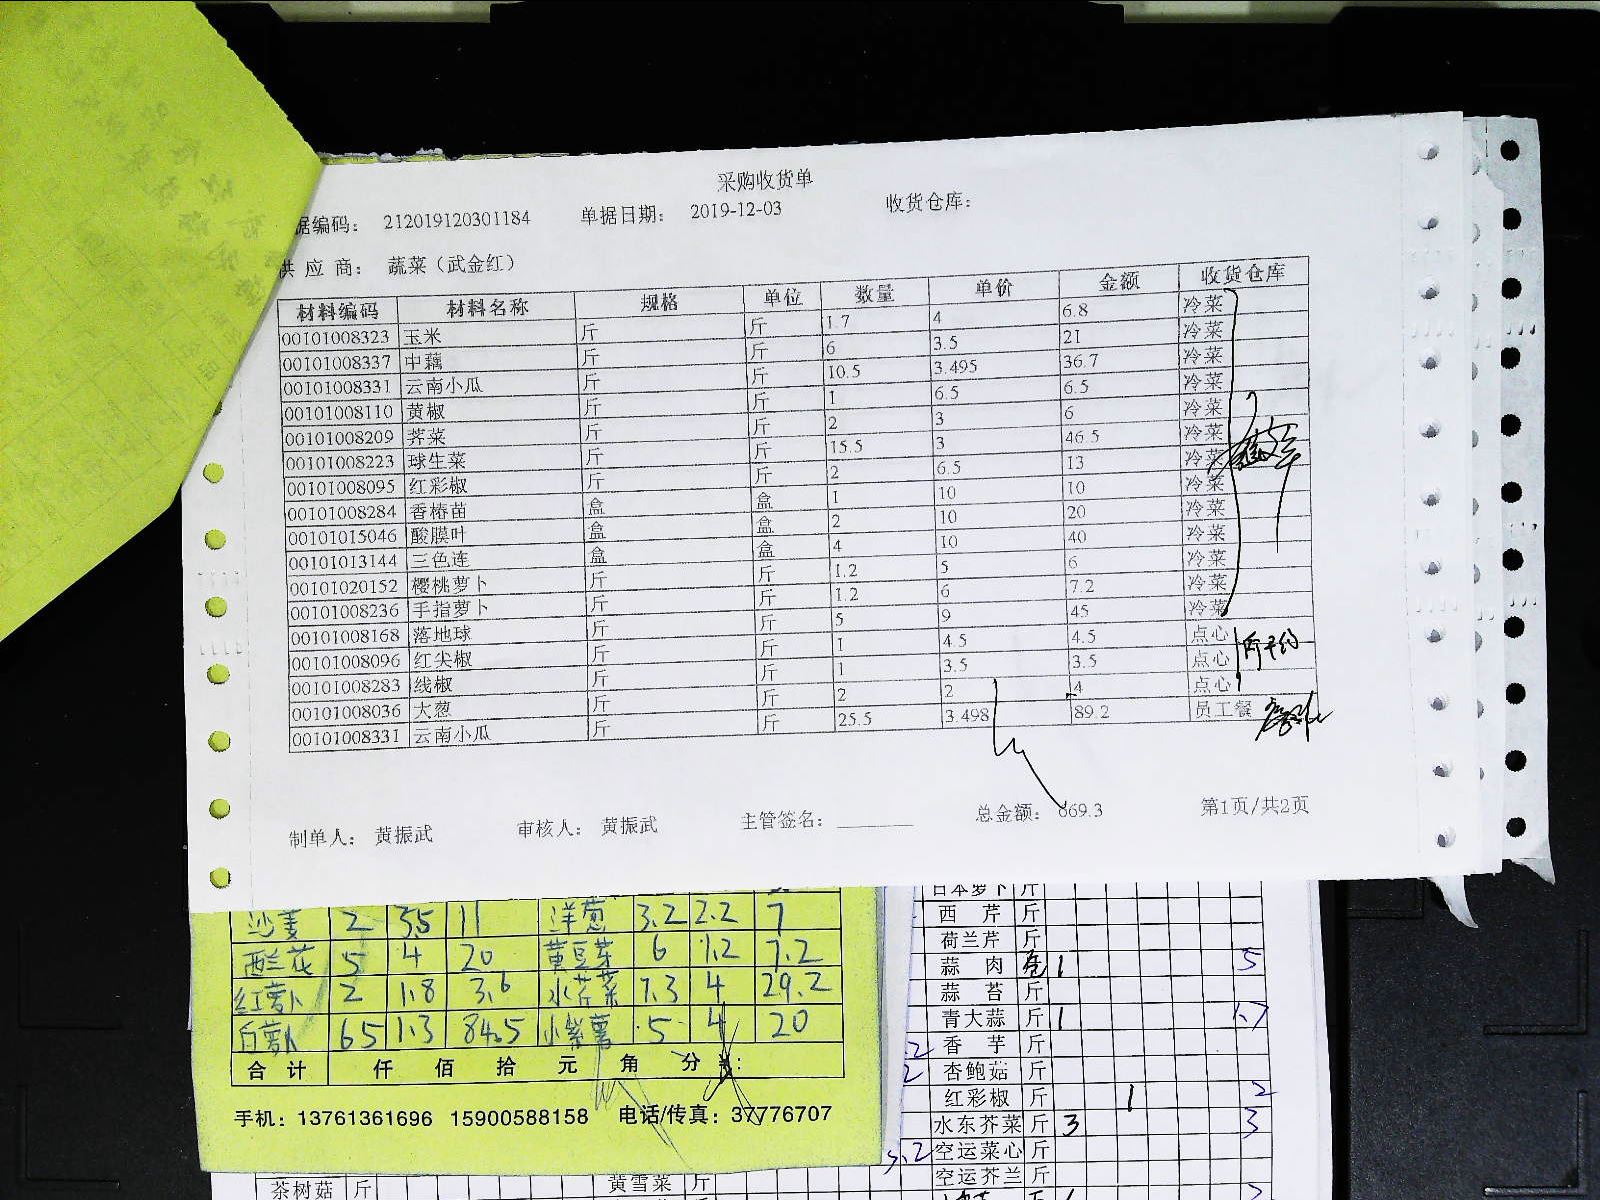 采购收货单
据编码： 212019120301184 单据日期： 2019-12-03 收货仓库：
供 应 商： 蔬菜（武金红）
材料编码 材料名称 规格 单位 数量 单价 金额 收货仓库
00101008323 玉米 斤 斤 1.7 4 6.8 冷菜
00101008337 中藕 斤 斤 6 3.5 21 冷菜
00101008331 云南小瓜 斤 斤 10.5 3.495 36.7 冷菜
00101008110 黄椒 斤 斤 1 6.5 6.5 冷菜
00101008209 荠菜 斤 斤 2 3 6 冷菜
00101008223 球生菜 斤 斤 15.5 3 46.5 冷菜
00101008095 红彩椒 斤 斤 2 6.5 13 冷菜
00101008284 香椿苗 盒 盒 1 10 10 冷菜
00101015046 酸膜叶 盒 盒 2 10 20 冷菜
00101013144 三色连 盒 盒 4 10 40 冷菜
00101020152 樱桃萝卜 斤 斤 1.2 5 6 冷菜
00101008236 手指萝卜 斤 斤 1.2 6 7.2 冷菜
00101008168 落地球 斤 斤 5 9 45 冷菜
00101008096 红尖椒 斤 斤 1 4.5 4.5 点心
00101008283 线椒 斤 斤 1 3.5 3.5 点心
00101008036 大葱 斤 斤 2 2 4 点心
00101008331 云南小瓜 斤 斤 25.5 3.498 89.2 员工餐
制单人： 黄振武 审核人： 黄振武 主管签名： 总金额： 669.3 第1页/共2页
沙姜 2 35 11 洋葱 3.2 2.2 7
西兰花 5 4 20 黄豆芽 6 1.2 7.2
红萝卜 2 1.8 3.6 水芹菜 7.3 4 29.2
白萝卜 65 1.3 84.5 小紫薯 5 4 20
合 计 仟 佰 拾 元 角 分 ¥:
手机：13761361696 15900588158 电话/传真：37776707
日本萝卜 斤
西 芹 斤
荷兰芹 斤
蒜 肉 1 5
蒜 苔 斤
青大蒜 斤 1 1.7
香 芋 斤
杏鲍菇 斤
红彩椒 斤 1 2
水东芥菜 斤 3 3
空运菜心 斤
空运芥兰 斤
茶树菇 斤 黄雪菜 斤